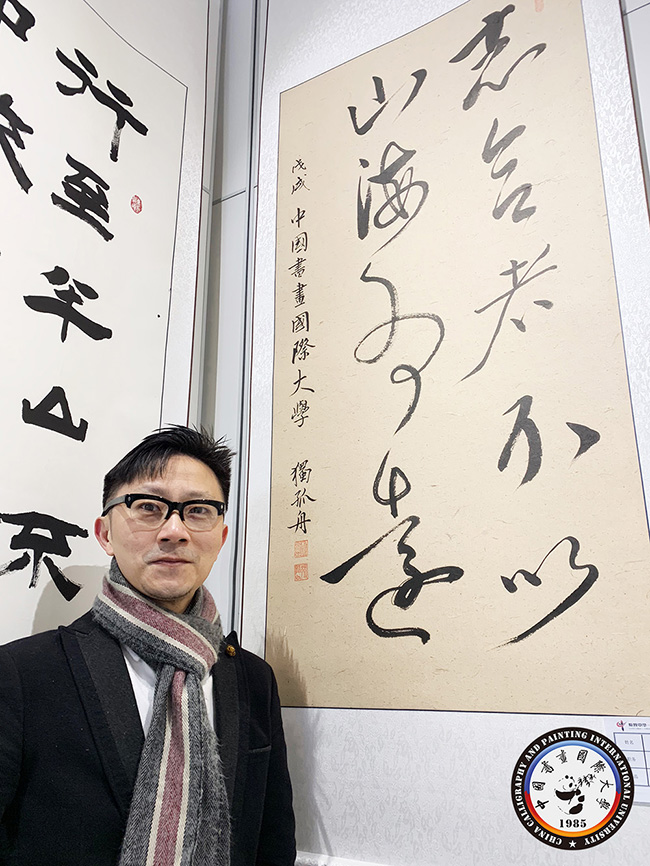 志合者不以
山海為遠
戊戌 中国書畫國際大學 獨孤舟
行至半山不
CHINA CALLIGRAPHY AND PAINTING INTERNATIONAL UNIVERSITY
中国書畫國際大學
1985